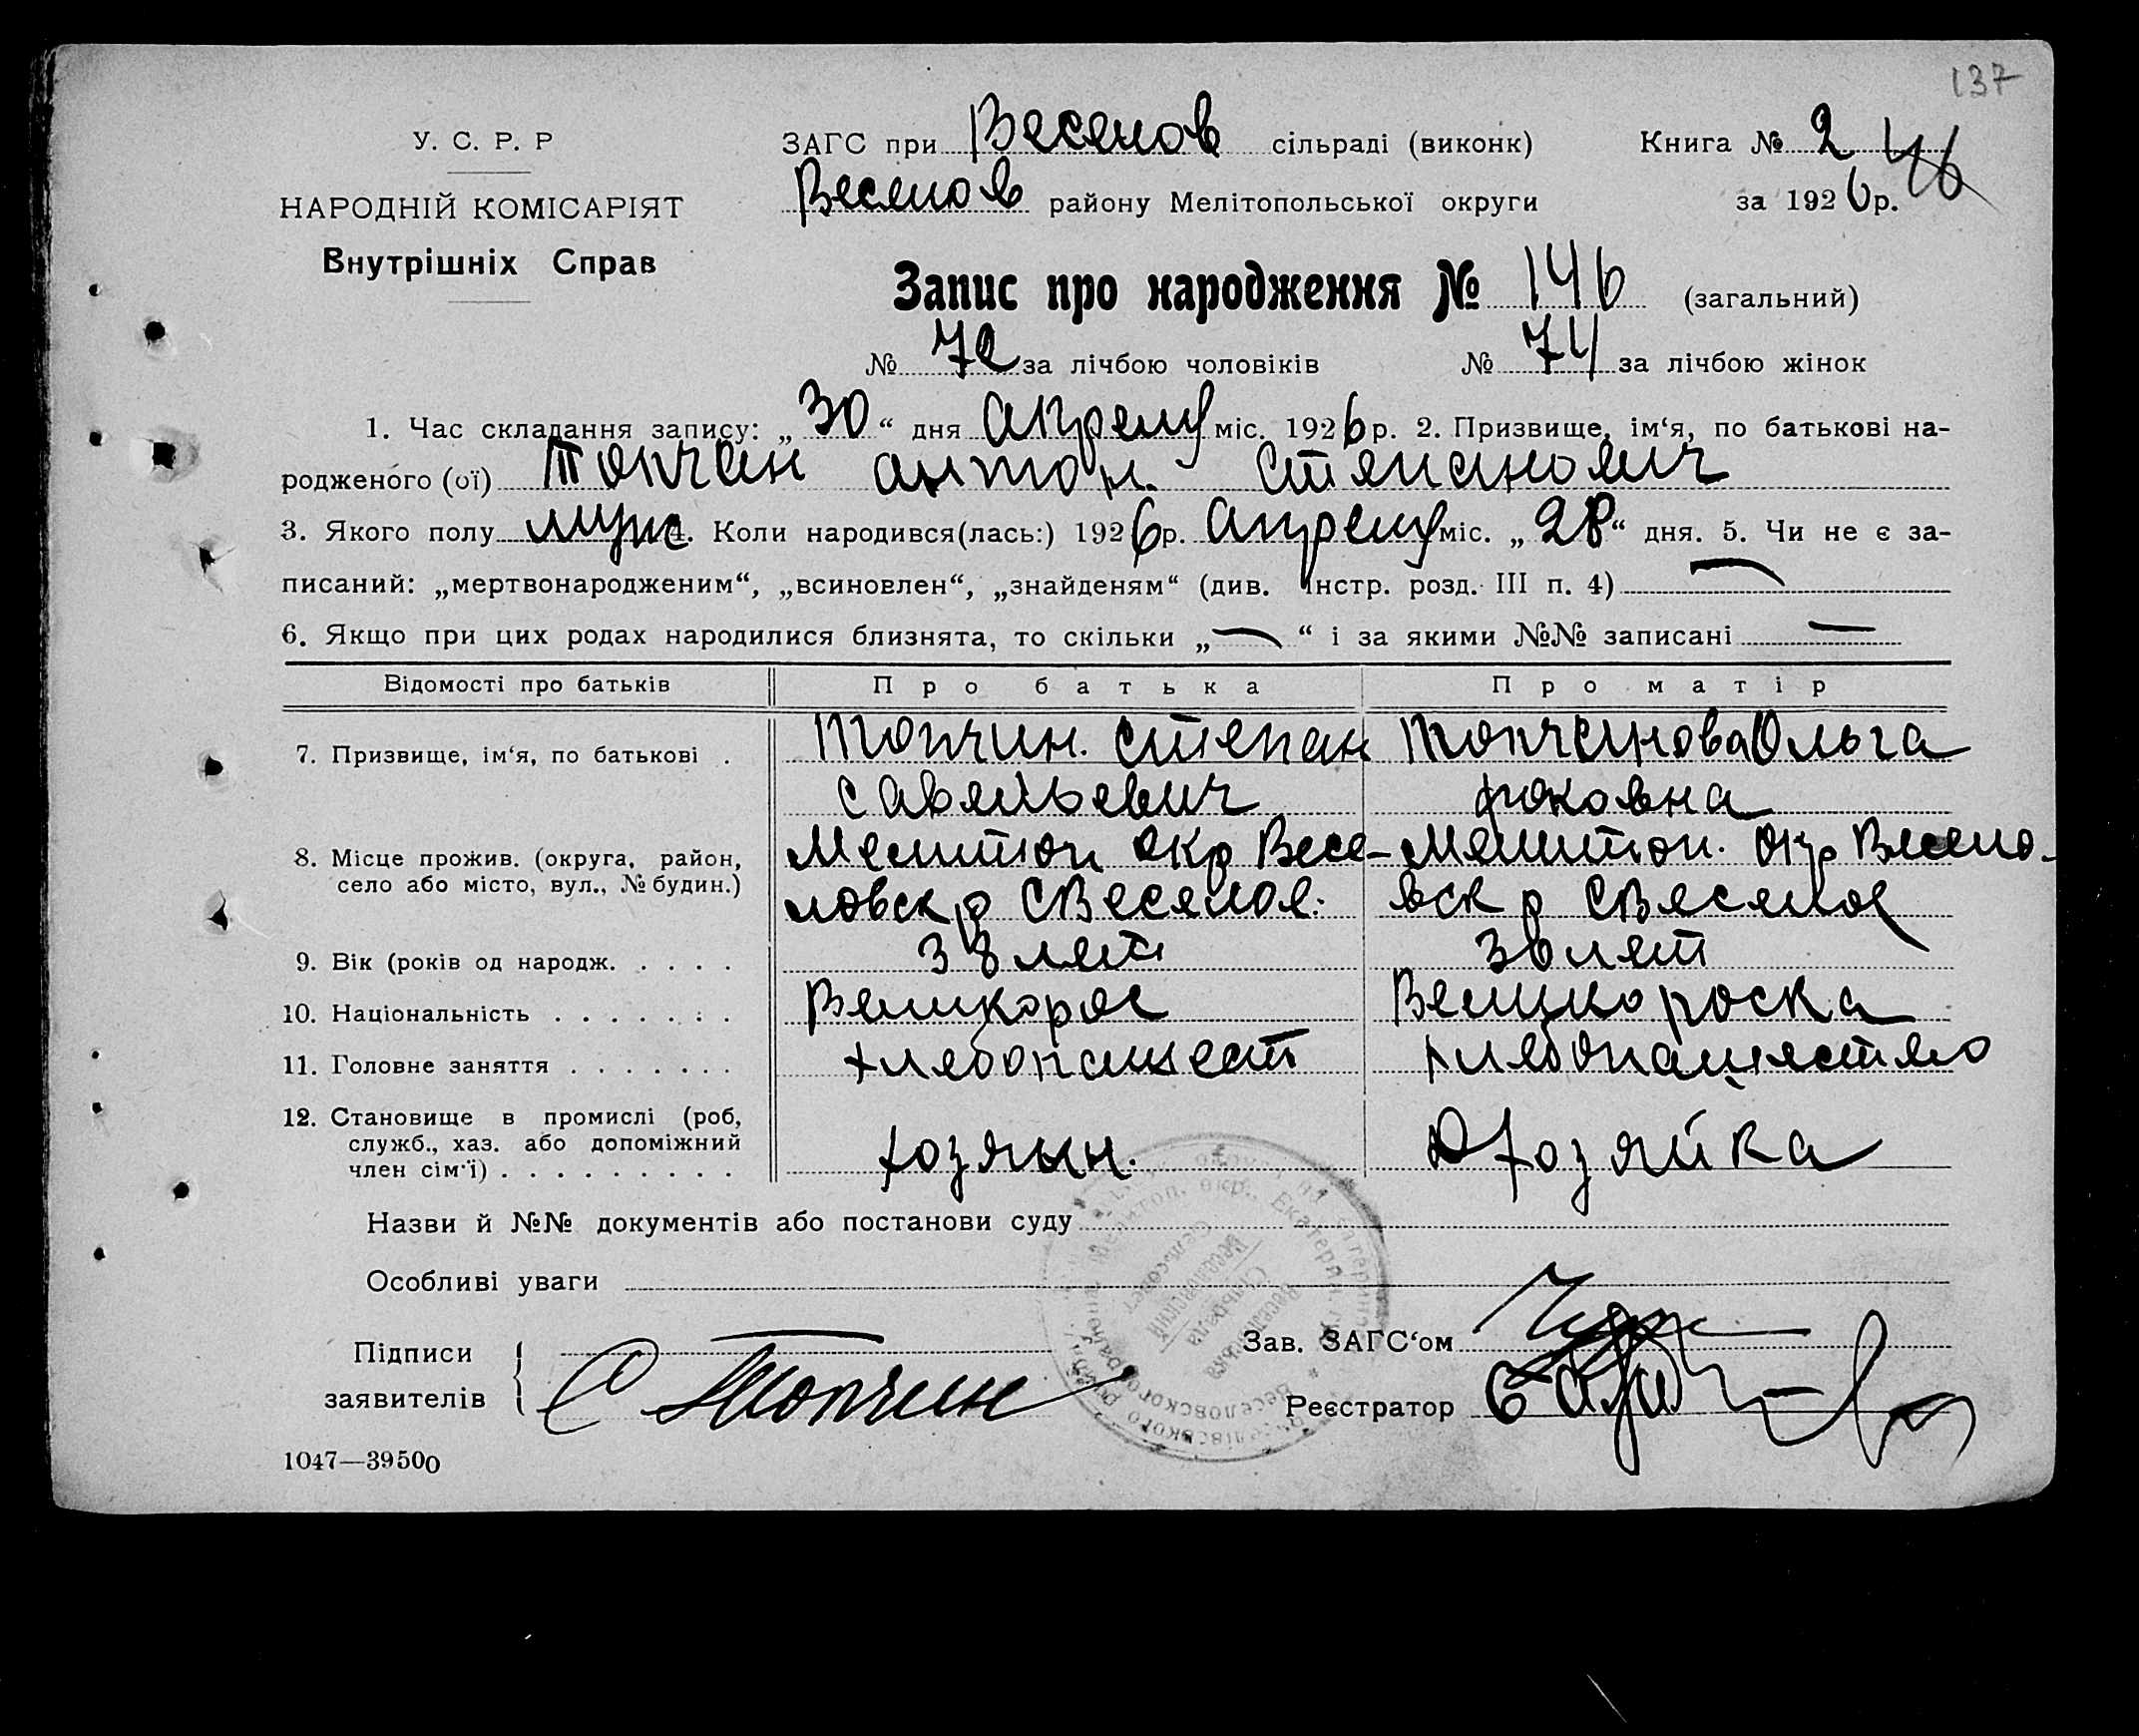 137
У. С. Р. Р
НАРОДНІЙ КОМІСАРІЯТ
Внутрішніх Справ
ЗАГС при Веселов сільраді (виконк) Книга № 2
Веселов району Мелітопольської округи за 1926 р. 46
Запис про народження № 146 (загальний)
№ 72 за лічбою чоловіків № 74 за лічбою жінок
1. Час складання запису: „30“ дня апрелу міс. 1926 р. 2. Призвище, ім‘я, по батькові на-
родженого (ої) Топчин антон. Степанович
3. Якого полу муж 4. Коли народився(лась:) 1926 р. апрелу міс. „28“ дня. 5. Чи не є за-
писаний: „мертвонародженим“, „всиновлен“, „знайденям“ (див. Інстр. розд. III п. 4) —
6. Якщо при цих родах народилися близнята, то скільки „—“ і за якими №№ записані —
Відомості про батьків Про батька Про матір
7. Призвище, ім‘я, по батькові . Топчин. Степан Топчинова Ольга
Савельевич
8. Місце прожив. (округа, район, Мелитоп окр Весе- Мелитоп. окр Весело-
село або місто, вул., № будин.) ловск р С Веселое: вск р С Веселое
9. Вік (років од народж. . . . . 38 лет 36 лет
10. Національність . . . . . . . Великорос Великороска
11. Головне заняття . . . . . . . хлебопашест хлебопашество
12. Становище в промислі (роб,
служб., хаз. або допоміжний хозяин. хозяйка
член сім‘ї) . . . . . . . . .
Назви й №№ документів або постанови суду
Особливі уваги
Підписи Зав. ЗАГС‘ом
заявителів С Топчин Реєстратор
1047—39500